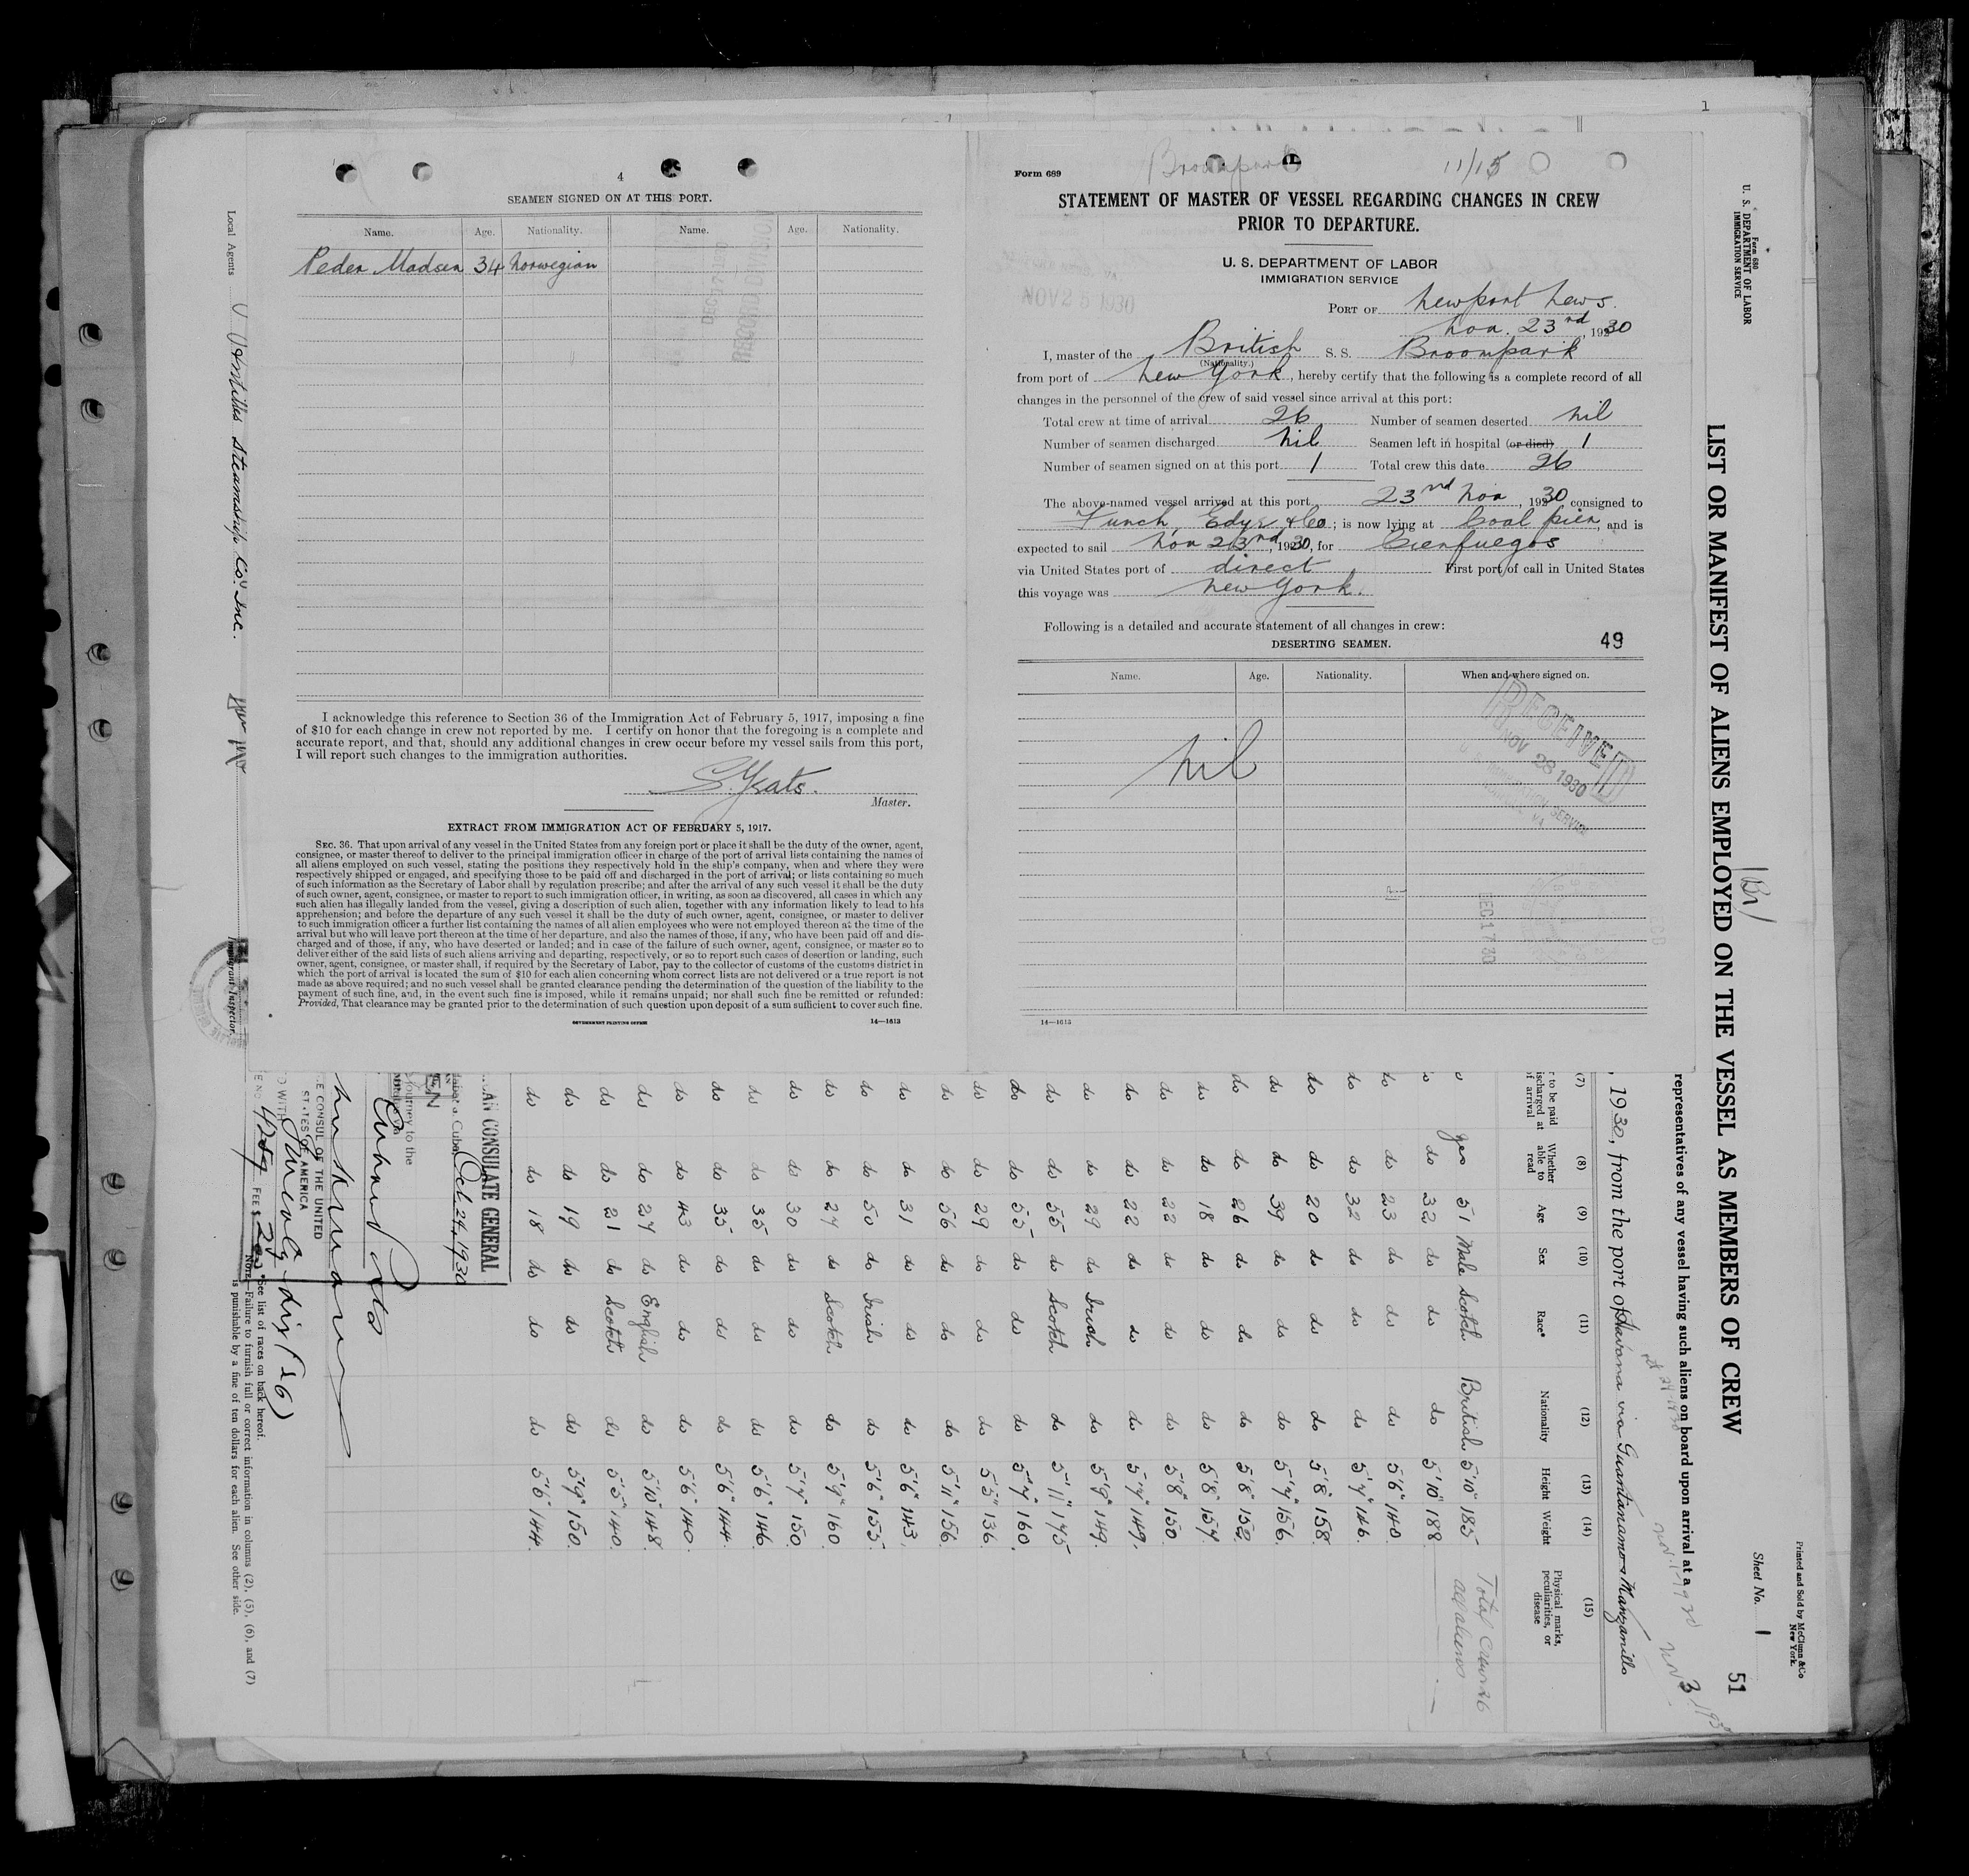 4
SEAMEN SIGNED ON AT THIS PORT.
Name. Age. Nationality. Name. Age. Nationality.
Peder Madsen 34 Norwegian
I acknowledge this reference to Section 36 of the Immigration Act of February 5, 1917, imposing a fine
of $10 for each change in crew not reported by me. I certify on honor that the foregoing is a complete and
accurate report, and that, should any additional changes in crew occur before my vessel sails from this port,
I will report such changes to the immigration authorities.
S. Yeats.
Master.
EXTRACT FROM IMMIGRATION ACT OF FEBRUARY 5, 1917.
SEC. 36. That upon arrival of any vessel in the United States from any foreign port or place it shall be the duty of the owner, agent,
consignee, or master thereof to deliver to the principal immigration officer in charge of the port of arrival lists containing the names of
all aliens employed on such vessel, stating the positions they respectively hold in the ship's company, when and where they were
respectively shipped or engaged, and specifying those to be paid off and discharged in the port of arrival; or lists containing so much
of such information as the Secretary of Labor shall by regulation prescribe; and after the arrival of any such vessel it shall be the duty
of such owner, agent, consignee, or master to report to such immigration officer, in writing, as soon as discovered, all cases in which any
such alien has illegally landed from the vessel, giving a description of such alien, together with any information likely to lead to his
apprehension; and before the departure of any such vessel it shall be the duty of such owner, agent, consignee, or master to deliver
to such immigration officer a further list containing the names of all alien employees who were not employed thereon at the time of the
arrival but who will leave port thereon at the time of her departure, and also the names of those, if any, who have been paid off and dis-
charged and of those, if any, who have deserted or landed; and in case of the failure of such owner, agent, consignee, or master so to
deliver either of the said lists of such aliens arriving and departing, respectively, or so to report such cases of desertion or landing, such
owner, agent, consignee, or master shall, if required by the Secretary of Labor, pay to the collector of customs of the customs district in
which the port of arrival is located the sum of $10 for each alien concerning whom correct lists are not delivered or a true report is not
made as above required; and no such vessel shall be granted clearance pending the determination of the question of the liability to the
payment of such fine, and, in the event such fine is imposed, while it remains unpaid; nor shall such fine be remitted or refunded:
Provided, That clearance may be granted prior to the determination of such question upon deposit of a sum sufficient to cover such fine.
GOVERNMENT PRINTING OFFICE 14—1613
Broompark 11/15
Form 689
STATEMENT OF MASTER OF VESSEL REGARDING CHANGES IN CREW
PRIOR TO DEPARTURE.
U. S. DEPARTMENT OF LABOR
IMMIGRATION SERVICE
NOV 25 1930
PORT OF Newport News.
Nov. 23rd, 1930
I, master of the British S. S. Broompark
(Nationality.)
from port of New York, hereby certify that the following is a complete record of all
changes in the personnel of the crew of said vessel since arrival at this port:
Total crew at time of arrival 26 Number of seamen deserted nil
Number of seamen discharged nil Seamen left in hospital (or died) 1
Number of seamen signed on at this port 1 Total crew this date 26
The above-named vessel arrived at this port 23rd Nov, 1930 consigned to
Funch, Edye & Co; is now lying at Coal pier, and is
expected to sail Nov 23rd, 1930, for Cienfuegos
via United States port of direct First port of call in United States
this voyage was New York.
Following is a detailed and accurate statement of all changes in crew:
DESERTING SEAMEN. 49
Name. Age. Nationality. When and where signed on.
nil
RECEIVED
NOV 28 1930
U. S. IMMIGRATION SERVICE
NORFOLK, VA
DEC 17 30
14—1613
1
Printed and Sold by McClunn & Co
New York.
Form 680
U. S. DEPARTMENT OF LABOR
IMMIGRATION SERVICE
Sheet No. 1
51
Br
LIST OR MANIFEST OF ALIENS EMPLOYED ON THE VESSEL AS MEMBERS OF CREW
representatives of any vessel having such aliens on board upon arrival at a
, 1930, from the port of Havana via Guantanamo & Manzanillo
(7) (8) (9) (10) (11) (12) (13) (14) (15)
r to be paid discharged at of arrival Whether able to read Age Sex Race* Nationality Height Weight Physical marks, peculiarities, or disease
yes 51 Male Scotch British 5'10" 185 Total Crew 26
do 32 do do do 5'10" 188 all aliens
do do 23 do do do 5'6" 140
do do 32 do do do 5'7" 146
do do 20 do do do 5'8" 158
do do 39 do do do 5'7" 156
do do 26 do do do 5'8" 152
do do 18 do do do 5'8" 157
do do 22 do do do 5'8" 150
do do 22 do do do 5'7" 149
do do 29 do Irish do 5'9" 149
do do 55 do Scotch do 5'11" 175
do do 55 do do do 5'7" 160
do do 29 do do do 5'5" 136
do do 56 do do do 5'11" 156
do do 31 do do do 5'6" 143
do do 50 do Irish do 5'6" 155
do do 27 do Scotch do 5'9" 160
do do 30 do do do 5'7" 150
do do 35 do do do 5'6" 146
do do 35 do do do 5'6" 144
do do 43 do do do 5'6" 140
do do 27 do English do 5'10" 148
do do 21 do Scotch do 5'5" 140
do do 19 do do do 5'9" 150
do do 18 do do do 5'6" 144
AN CONSULATE GENERAL
a, Cuba, Oct. 24, 1930
journey to the
CE CONSUL OF THE UNITED
STATES OF AMERICA
Twenty-six (26)
FEE $
*See list of races on back hereof.
NOTE.—Failure to furnish full or correct information in columns (2), (5), (6), and (7)
is punishable by a fine of ten dollars for each alien. See other side.
Local Agents Steamship Co. Inc.
Immigrant Inspector.